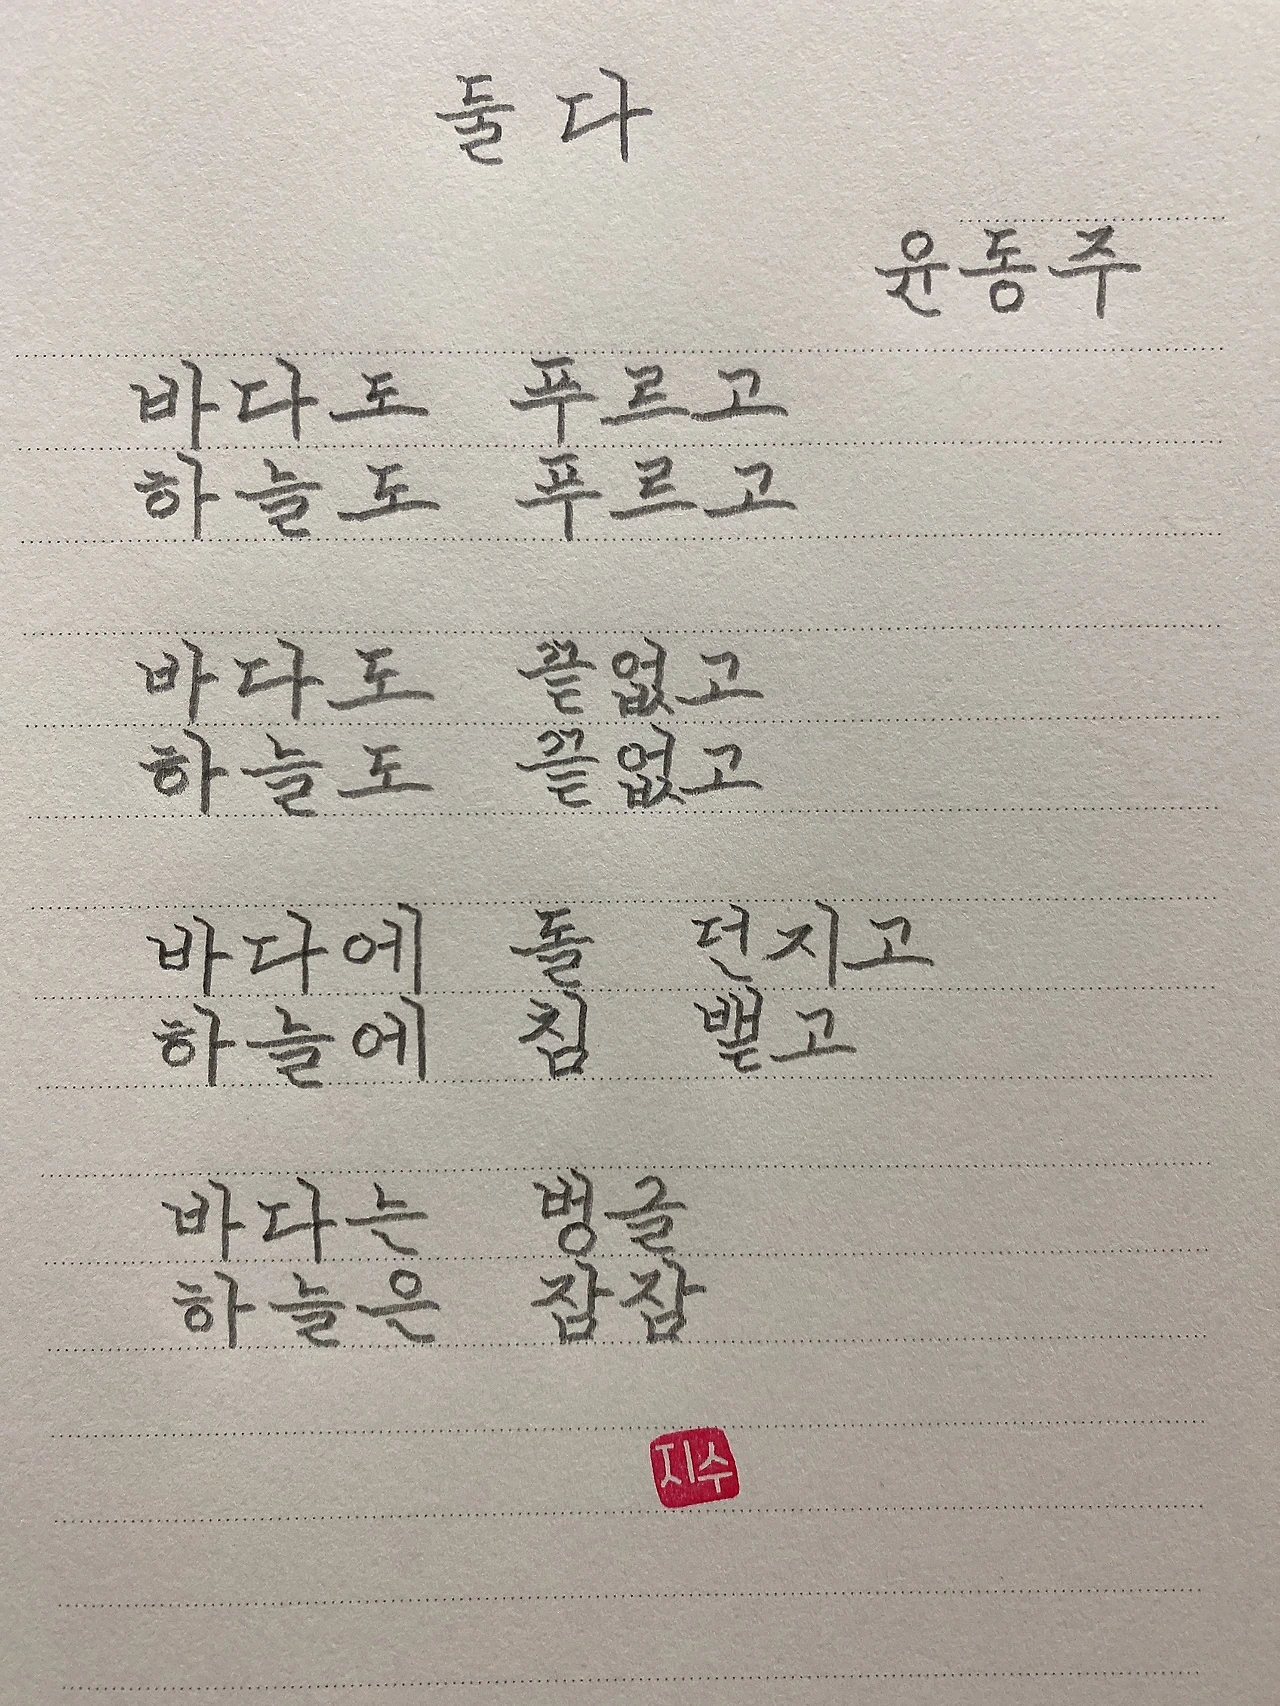 둘 다
윤동주
바다도 푸르고
하늘도 푸르고
바다도 끝없고
하늘도 끝없고
바다에 돌 던지고
하늘에 침 뱉고
바다는 벙글
하늘은 잠잠
지수